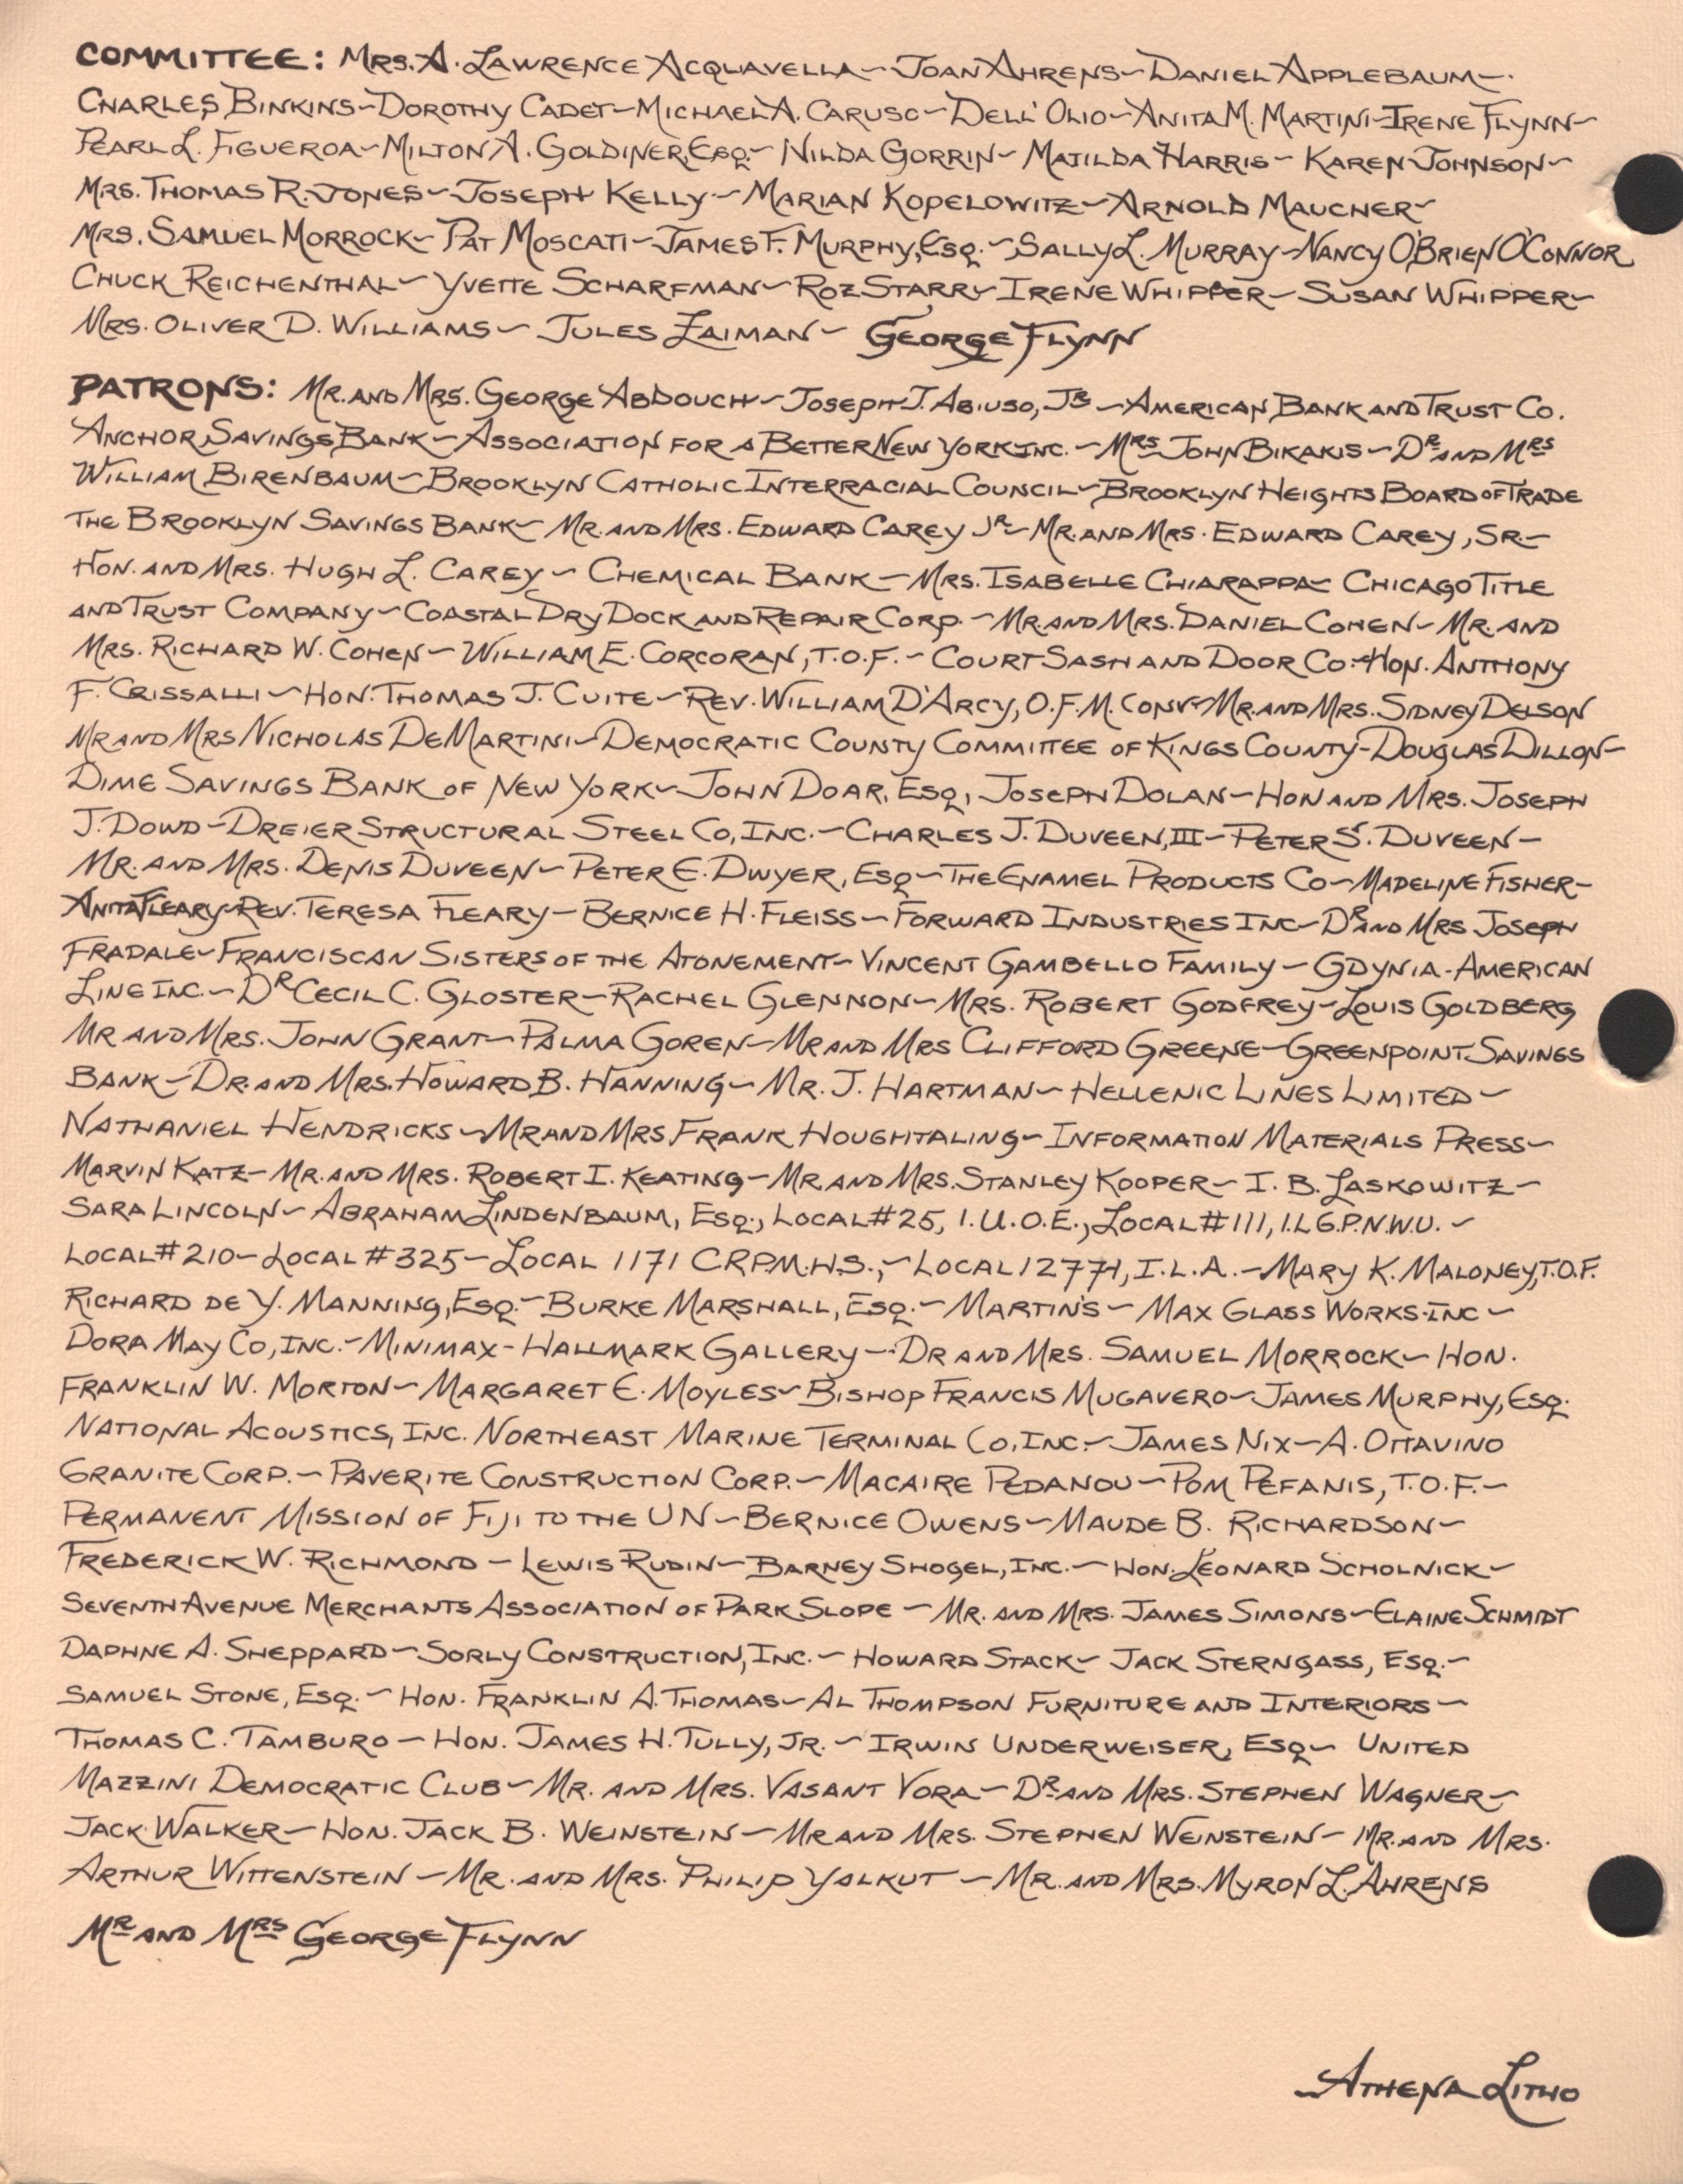 COMMITTEE: MRS. A. LAWRENCE ACQUAVELLA~JOAN AHRENS~DANIEL APPLEBAUM~
CHARLES BINKINS~DOROTHY CADET~MICHAEL A. CARUSO~DELL'OLIO~ANITA M. MARTINI~IRENE FLYNN~
PEARL L. FIGUEROA~MILTON A. GOLDINER, ESQ.~NILDA GORRIN~MATILDA HARRIS~KAREN JOHNSON~
MRS. THOMAS R. JONES~JOSEPH KELLY~MARIAN KOPELOWITZ~ARNOLD MAUCHER~
MRS. SAMUEL MORROCK~PAT MOSCATI~JAMES F. MURPHY, ESQ.~SALLY L. MURRAY~NANCY O'BRIEN O'CONNOR
CHUCK REICHENTHAL~YVETTE SCHARFMAN~ROZ STARR~IRENE WHIPPER~SUSAN WHIPPER~
MRS. OLIVER D. WILLIAMS~JULES ZAIMAN~GEORGE FLYNN
PATRONS: MR. AND MRS. GEORGE ABDOUCH~JOSEPH J. ABIUSO, JR~AMERICAN BANK AND TRUST CO.
ANCHOR SAVINGS BANK~ASSOCIATION FOR A BETTER NEW YORK INC.~MRS JOHN BIKAKIS~DR AND MRS
WILLIAM BIRENBAUM~BROOKLYN CATHOLIC INTERRACIAL COUNCIL~BROOKLYN HEIGHTS BOARD OF TRADE
THE BROOKLYN SAVINGS BANK~MR. AND MRS. EDWARD CAREY JR~MR. AND MRS. EDWARD CAREY, SR.~
HON. AND MRS. HUGH L. CAREY~CHEMICAL BANK~MRS. ISABELLE CHIARAPPA~CHICAGO TITLE
AND TRUST COMPANY~COASTAL DRY DOCK AND REPAIR CORP.~MR. AND MRS. DANIEL COHEN~MR. AND
MRS. RICHARD W. COHEN~WILLIAM E. CORCORAN, T.O.F.~COURT SASH AND DOOR CO.~HON. ANTHONY
F. CRISSALLI~HON. THOMAS J. CUITE~REV. WILLIAM D'ARCY, O.F.M. CONV~MR. AND MRS. SIDNEY DELSON
MR AND MRS NICHOLAS DEMARTINI~DEMOCRATIC COUNTY COMMITTEE OF KINGS COUNTY~DOUGLAS DILLON~
DIME SAVINGS BANK OF NEW YORK~JOHN DOAR, ESQ, JOSEPH DOLAN~HON AND MRS. JOSEPH
J. DOWD~DREIER STRUCTURAL STEEL CO, INC.~CHARLES J. DUVEEN, III~PETER S. DUVEEN~
MR. AND MRS. DENIS DUVEEN~PETER E. DWYER, ESQ~THE ENAMEL PRODUCTS CO~MADELINE FISHER~
ANITA FLEARY~REV. TERESA FLEARY~BERNICE H. FLEISS~FORWARD INDUSTRIES INC~DR AND MRS JOSEPH
FRADALE~FRANCISCAN SISTERS OF THE ATONEMENT~VINCENT GAMBELLO FAMILY~GDYNIA-AMERICAN
LINE INC.~DR CECIL C. GLOSTER~RACHEL GLENNON~MRS. ROBERT GODFREY~LOUIS GOLDBERG
MR AND MRS. JOHN GRANT~PALMA GOREN~MR AND MRS CLIFFORD GREENE~GREENPOINT SAVINGS
BANK~DR. AND MRS. HOWARD B. HANNING~MR. J. HARTMAN~HELLENIC LINES LIMITED~
NATHANIEL HENDRICKS~MR AND MRS FRANK HOUGHTALING~INFORMATION MATERIALS PRESS~
MARVIN KATZ~MR. AND MRS. ROBERT I. KEATING~MR AND MRS. STANLEY KOOPER~I. B. LASKOWITZ~
SARA LINCOLN~ABRAHAM LINDENBAUM, ESQ., LOCAL #25, I.U.O.E., LOCAL #111, I.L.G.P.N.W.U.~
LOCAL #210~LOCAL #325~LOCAL 1171 C.R.P.M.H.S.,~LOCAL 12771, I.L.A.~MARY K. MALONEY, T.O.F.
RICHARD DE Y. MANNING, ESQ.~BURKE MARSHALL, ESQ.~MARTIN'S~MAX GLASS WORKS INC~
DORA MAY CO, INC.~MINIMAX-HALLMARK GALLERY~DR AND MRS. SAMUEL MORROCK~HON.
FRANKLIN W. MORTON~MARGARET E. MOYLES~BISHOP FRANCIS MUGAVERO~JAMES MURPHY, ESQ.
NATIONAL ACOUSTICS, INC. NORTHEAST MARINE TERMINAL CO, INC.~JAMES NIX~A. OTTAVINO
GRANITE CORP.~PAVERITE CONSTRUCTION CORP.~MACAIRE PEDANOU~POM PEFANIS, T.O.F.~
PERMANENT MISSION OF FIJI TO THE UN~BERNICE OWENS~MAUDE B. RICHARDSON~
FREDERICK W. RICHMOND~LEWIS RUDIN~BARNEY SHOGEL, INC.~HON. LEONARD SCHOLNICK~
SEVENTH AVENUE MERCHANTS ASSOCIATION OF PARK SLOPE~MR. AND MRS. JAMES SIMONS~ELAINE SCHMIDT
DAPHNE A. SHEPPARD~SORLY CONSTRUCTION, INC.~HOWARD STACK~JACK STERNGASS, ESQ.~
SAMUEL STONE, ESQ.~HON. FRANKLIN A. THOMAS~AL THOMPSON FURNITURE AND INTERIORS~
THOMAS C. TAMBURO~HON. JAMES H. TULLY, JR.~IRWIN UNDERWEISER, ESQ~UNITED
MAZZINI DEMOCRATIC CLUB~MR. AND MRS. VASANT VORA~DR. AND MRS. STEPHEN WAGNER~
JACK WALKER~HON. JACK B. WEINSTEIN~MR AND MRS. STEPHEN WEINSTEIN~MR. AND MRS.
ARTHUR WITTENSTEIN~MR. AND MRS. PHILIP YALKUT~MR. AND MRS. MYRON L. AHRENS
MR AND MRS GEORGE FLYNN
ATHENA LITHO